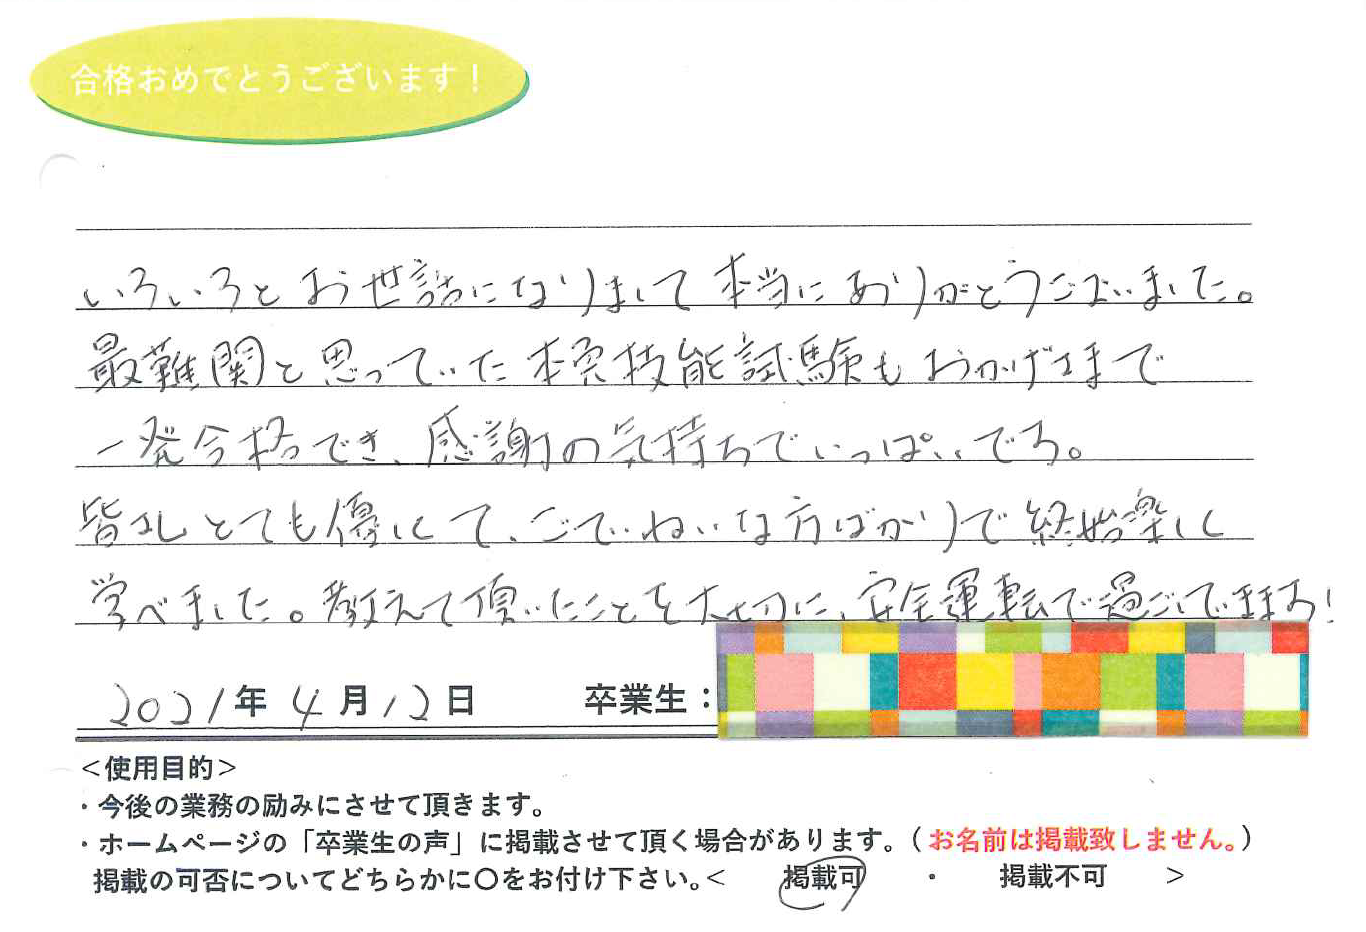 合格おめでとうございます！
いろいろとお世話になりまして本当にありがとうございました。
最難関と思っていた本免技能試験もおかげさまで
一発合格でき、感謝の気持ちでいっぱいです。
皆さんとても優しくて、ごていねいな方ばかりで終始楽しく
学べました。教えて頂いたことを大切に、安全運転で過ごしてきます！
2021年4月12日 卒業生：
＜使用目的＞
・今後の業務の励みにさせて頂きます。
・ホームページの「卒業生の声」に掲載させて頂く場合があります。（お名前は掲載致しません。）
掲載の可否についてどちらかに○をお付け下さい。＜ 掲載可 ・ 掲載不可 ＞